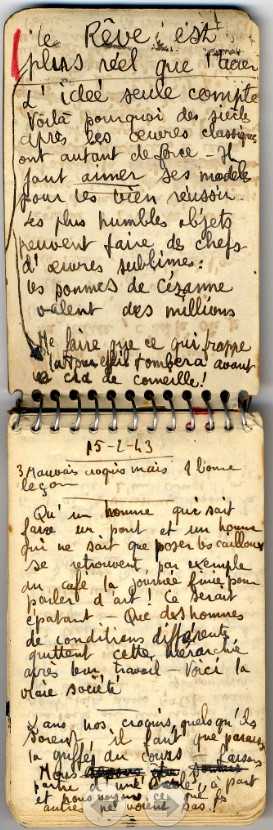 Le Rêve c'est
plus réel que l'acier
L'idée seule compte
Voilà pourquoi des siècles
après les œuvres classiques
ont autant de force - Il
faut aimer ses modèles
pour les bien réussir
Les plus humbles objets
peuvent faire de chefs
d'œuvres sublimes:
les pommes de Cézanne
valent des millions
Ne faire que ce qui frappe
tombera avant
le Cid de Corneille!
15-2-43
3 Mauvais croquis mais 1 bonne
leçon
Qu'un homme qui sait
faire un pont et un homme
qui ne sait que poser les cailloux
se retrouvent, par exemple
au café la journée finie pour
parler d'art! Ce serait
épatant - Que des hommes
de conditions différente,
quittent cette hiérarchie
après leur travail - Voici la
vraie société
Dans nos croquis, quelqu'ils
soient, il faut que paraisse
la griffe du cours -
Nous
partie d'une à part
et nous voyons ce que les
autres ne voient pas!